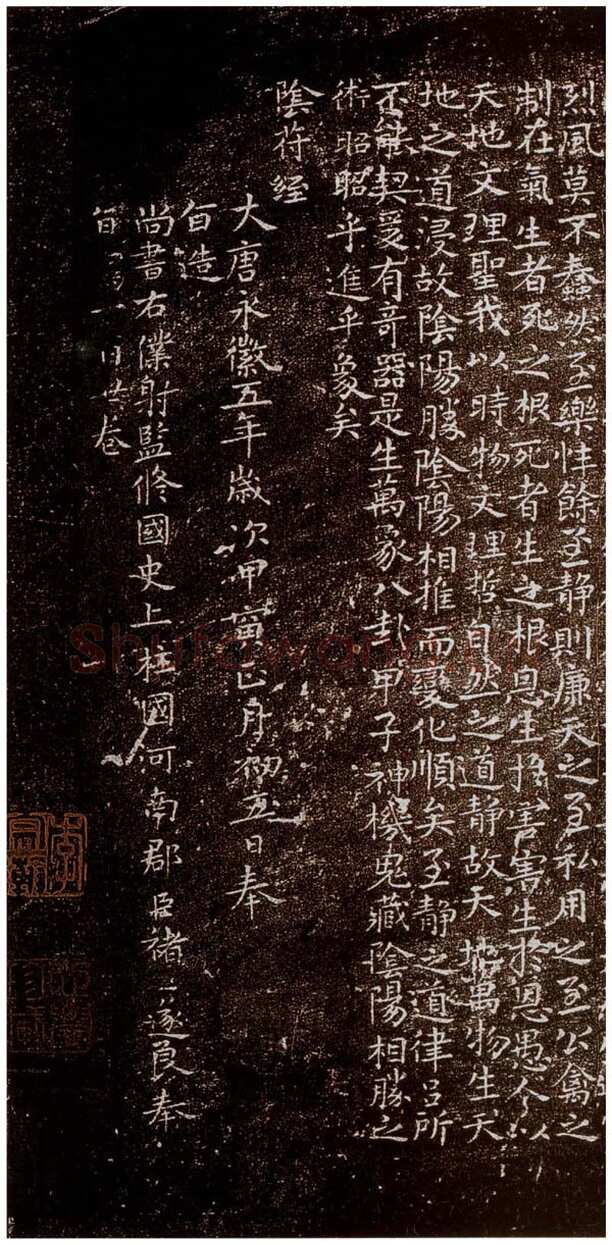 烈風莫不蠢然至樂性餘至静則廉天之至私用之至公禽之
制在氣生者死之根死者生之根恩生扵害害生扵恩愚人以
天地文理聖我以時物文理哲自然之道静故天地萬物生天
地之道浸故陰陽勝陰陽相推而變化順矣至静之道律吕所
不能契爰有奇器是生萬象八卦甲子神機鬼藏陰陽相勝之
術昭昭乎進乎象矣
陰符經
大唐永徽五年歲次甲寅正月初五日奉
旨造
尚書右僕射監修國史上柱國河南郡臣褚遂良奉
旨
日
卷